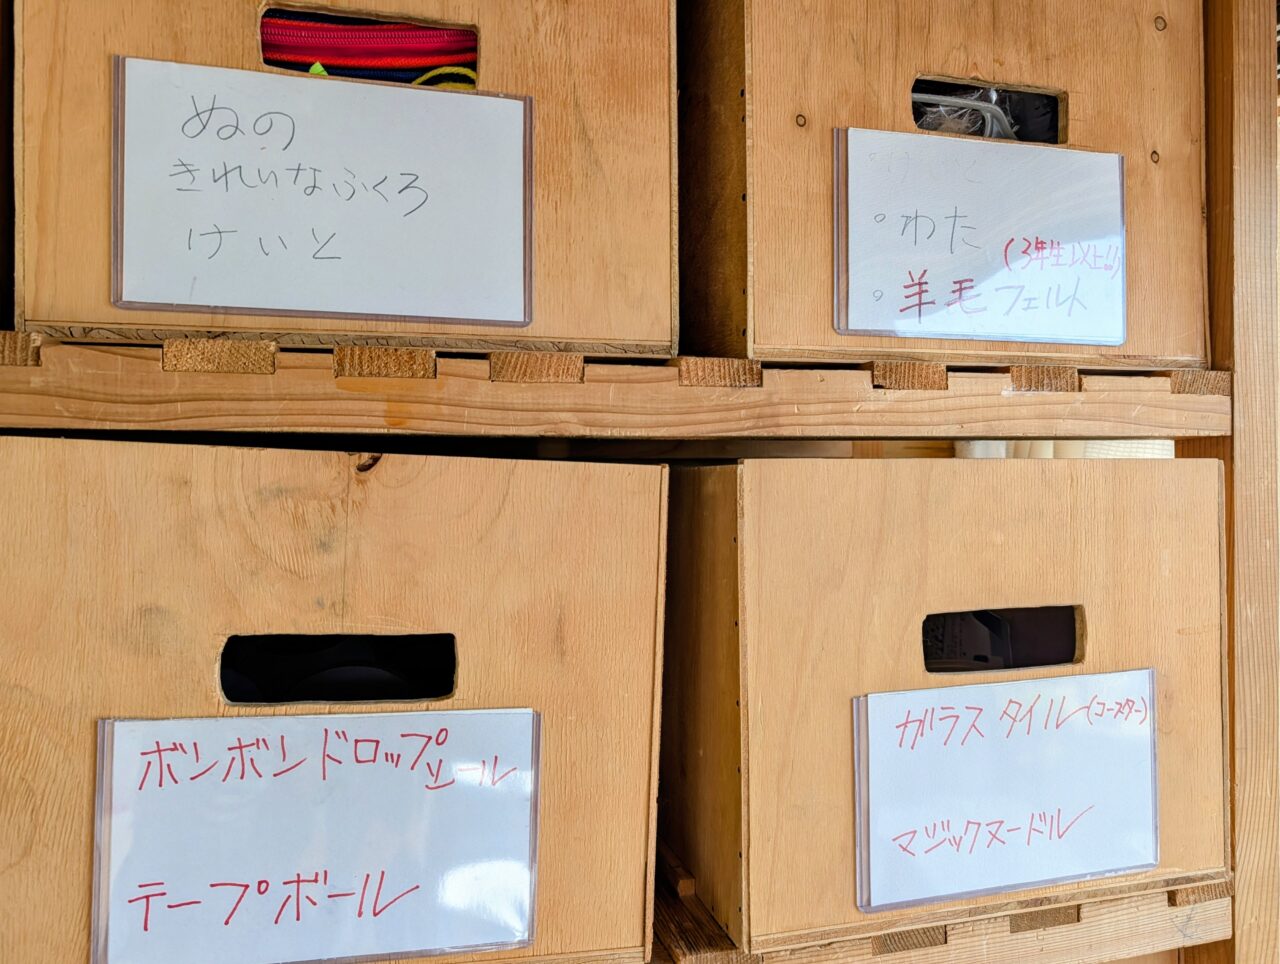 ぬの
きれいなふくろ
けいと
。けいと
。わた
(3年生以上!!)
。羊毛フェルト
ボンボンドロップシール
テープボール
ガラスタイル(コースター)
マジックヌードル